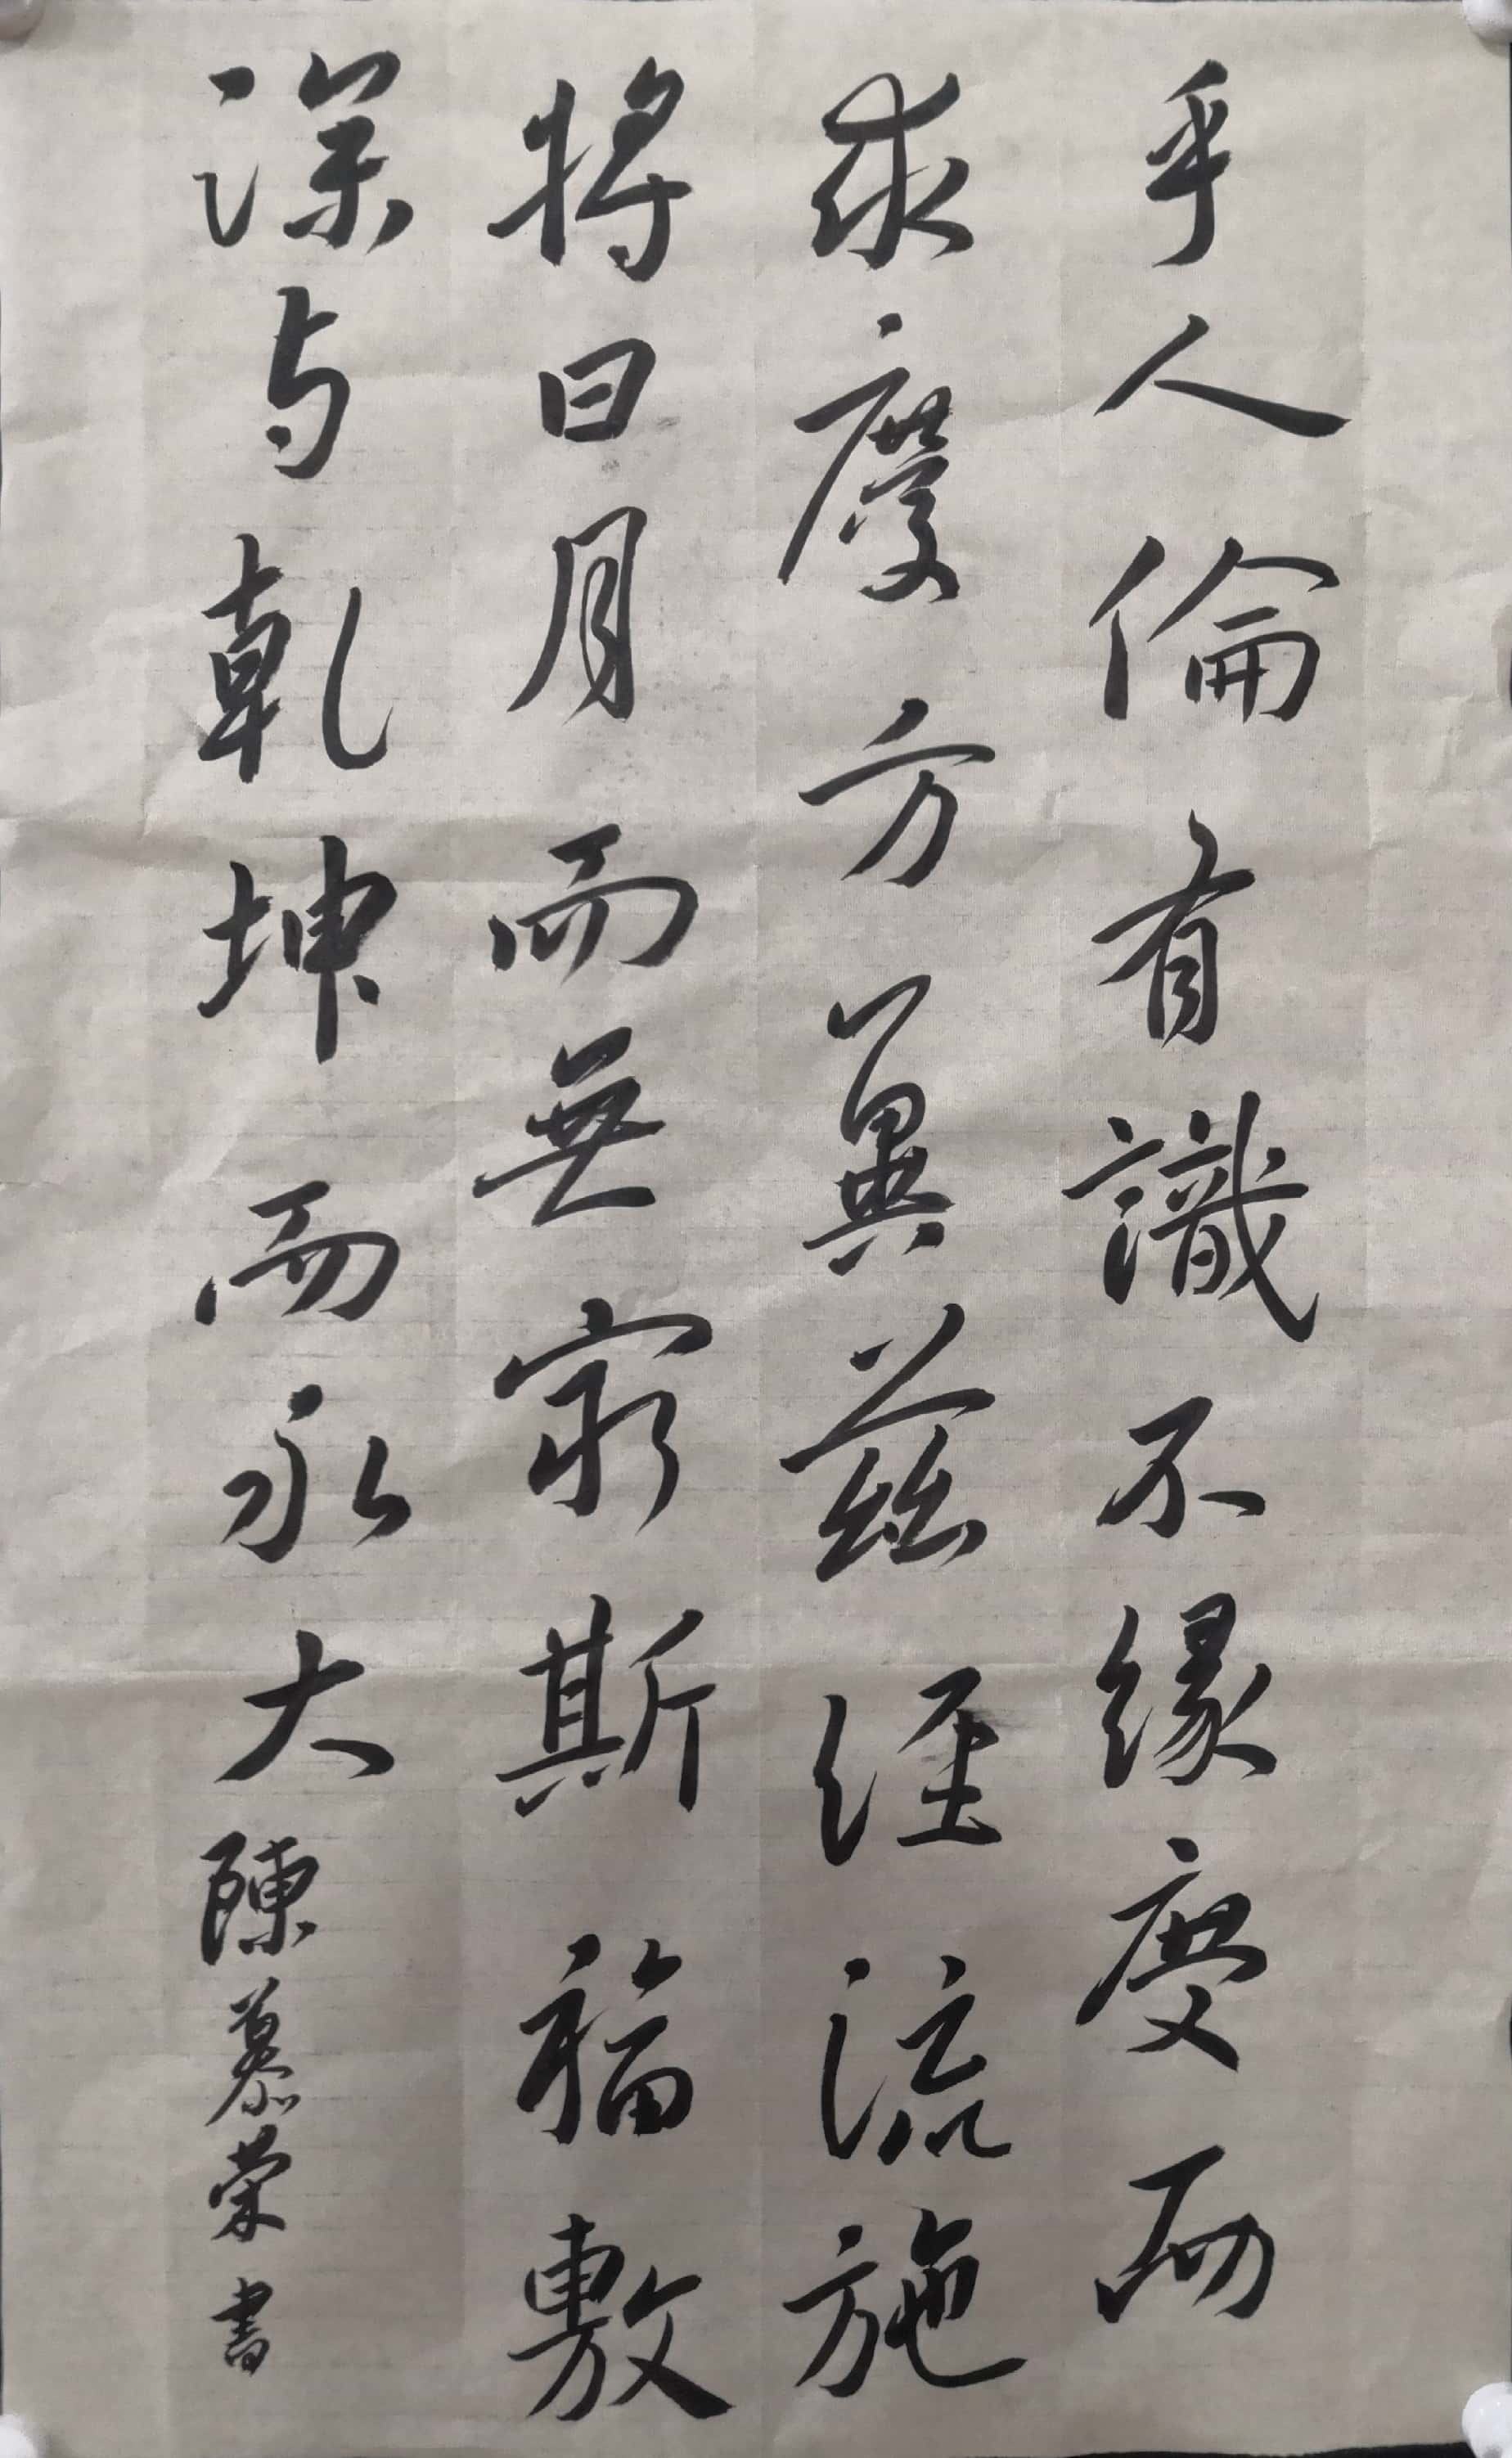 乎人倫有識不緣慶而
求慶方冀茲經流施
將日月而無窮斯福敷
深与乾坤而永大
陳慕荣書